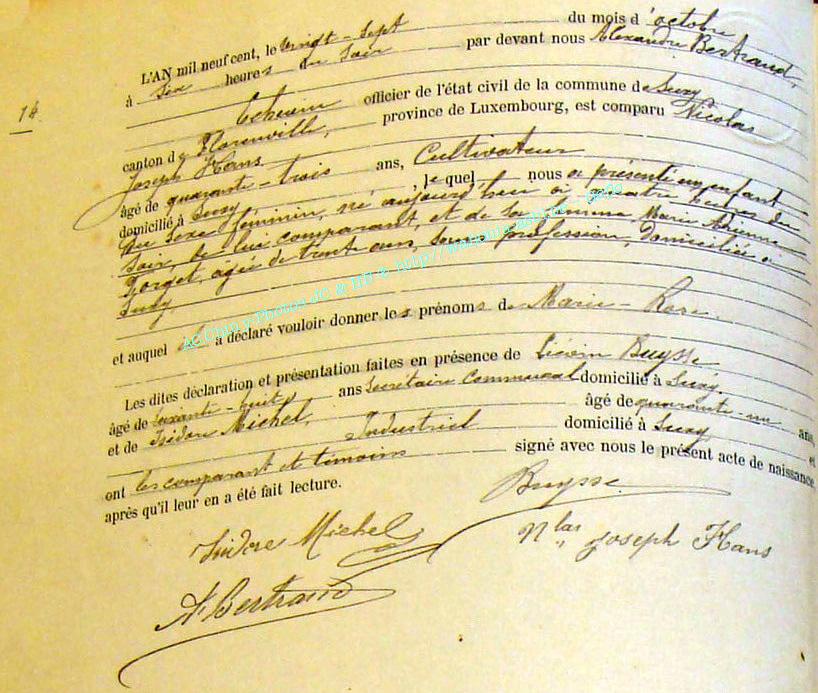 L'AN mil neuf cent, le vingt-sept du mois d'octobre
à six heures du soir par devant nous Alexandre Bertrand,
Echevin officier de l'état civil de la commune de Suxy
canton de Florenville, province de Luxembourg, est comparu Nicolas
Joseph Hans
âgé de quarante-trois ans, Cultivateur
domicilié à Suxy, le quel nous a présenté un enfant
du sexe féminin, né aujourd'hui à quatre heures du
soir, de lui comparant, et de sa femme Marie
Forget, âgée de trente ans, sans profession, domiciliée à
Suxy
et auquel il a déclaré vouloir donner les prénoms de Marie-Rose.
Les dites déclaration et présentation faites en présence de Liévin Buysse
âgé de soixante-huit ans Secrétaire Communal domicilié à Suxy
et de Isidore Michel, âgé de quarante-un ans,
Industriel domicilié à Suxy et
ont les comparant et témoins signé avec nous le présent acte de naissance
après qu'il leur en a été fait lecture.
Buysse
Isidore Michel
Nlas Joseph Hans
A Bertrand
14